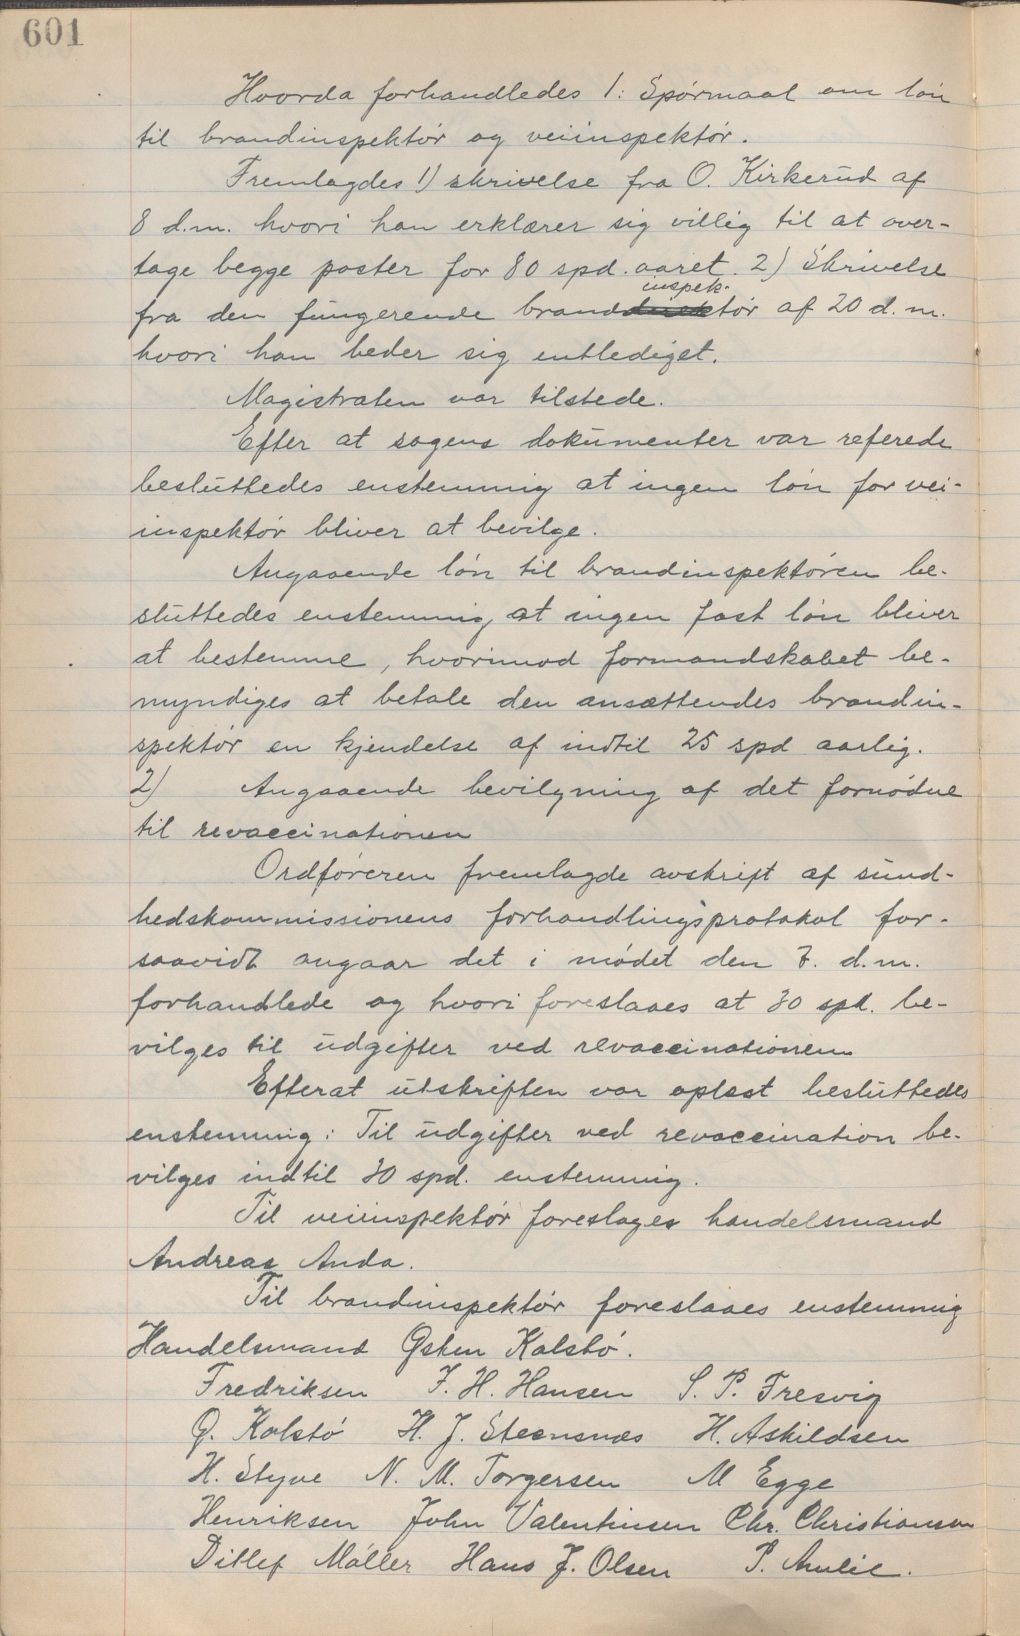 601
Hvorda forhandledes 1: Spörmaal om lön
til brandinspektör og veiinspektör.
Fremlagdes 1) skrivelse fra O. Kirkerud af
8 d.m. hvori han erklærer sig villig til at over-
tage begge poster for 80 spd. aaret. 2) Skrivelse
inspek-
fra den fungerende branddirektör af 20 d.m.
hvori han beder sig entlediget.
Magistraten var tilstede.
Efter at sagens dokumenter var referede
besluttedes enstemmig at ingen lön for vei-
inspektör bliver at bevilge.
Angaaende lön til brandinspektören be-
sluttedes enstemmig at ingen fast lön bliver
at bestemme, hvorimod formandskabet be-
myndiges at betale den ansættendes brandin-
spektör en kjendelse af indtil 25 spd aarlig.
2) Angaaende bevilgning af det fornödne
til revaccinationen
Ordföreren fremlagde avskrift af sund-
hedskommissionens forhandlingsprotokol for-
saavidt angaar det i mödet den 7. d.m.
forhandlede og hvori foreslaaes at 30 spd. be-
vilges til udgifter ved revaccinationen
Efterat utskriften var oplæst besluttedes
enstemmig: Til udgifter ved revaccination be-
vilges indtil 30 spd. enstemmig.
Til veiinspektör foreslages handelsmand
Andreas Anda.
Til brandinspektör foreslaaes enstemmig
Handelsmand Östen Kalstö.
Fredriksen J. H. Hansen S. P. Tresvig
Ö. Kalstö H. J. Steensnæs H. Askildsen
H. Styve N. M. Torgersen M Egge
Henriksen John Valentinsen Chr. Christiansen
Ditlef Möller Hans J. Olsen P. Amlie.